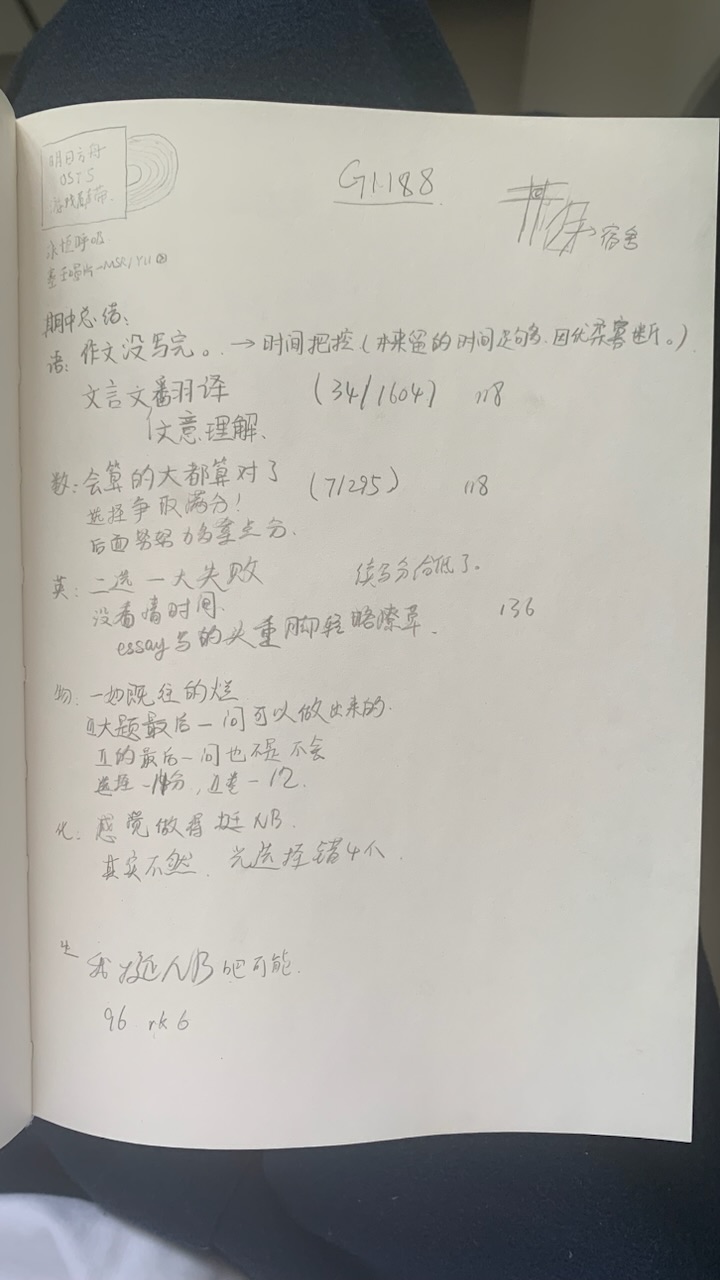 明日方舟
OST5
G1188
宿舍
期中总结:
语: 作文没写完。→时间把控(本来留的时间足够,因优柔寡断。)
文言文翻译 (34/1604) 118
文意理解、
数: 会算的大都算对了 (71295) 118
选择争取满分!
后面努努力多拿点分.
英: 二选一大失败 续写分给低了。
没看清时间、 136
essay写的头重脚轻略潦草.
物: 一如既往的烂
大题最后一问可以做出来的.
的最后一问也不是不会
选择
化: 感觉做得挺NB.
其实不然. 光选择错4个.
生 我挺NB吧可能.
96 rk6